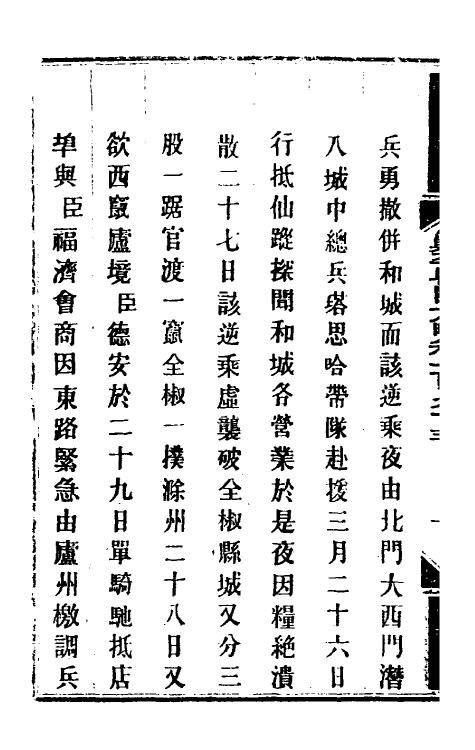 兵勇撤併和城而該逆乘夜由北門大西門潛
入城中總兵塔思哈帶隊赴援三月二十六日
行抵仙蹤探聞和城各營業於是夜因糧絕潰
散二十七日該逆乘虛襲破全椒縣城又分三
股一踞官渡一竄全椒一撲滁州二十八日又
欲西竄廬境臣德安於二十九日單騎馳抵店
埠與臣福濟會商因東路緊急由廬州檄調兵